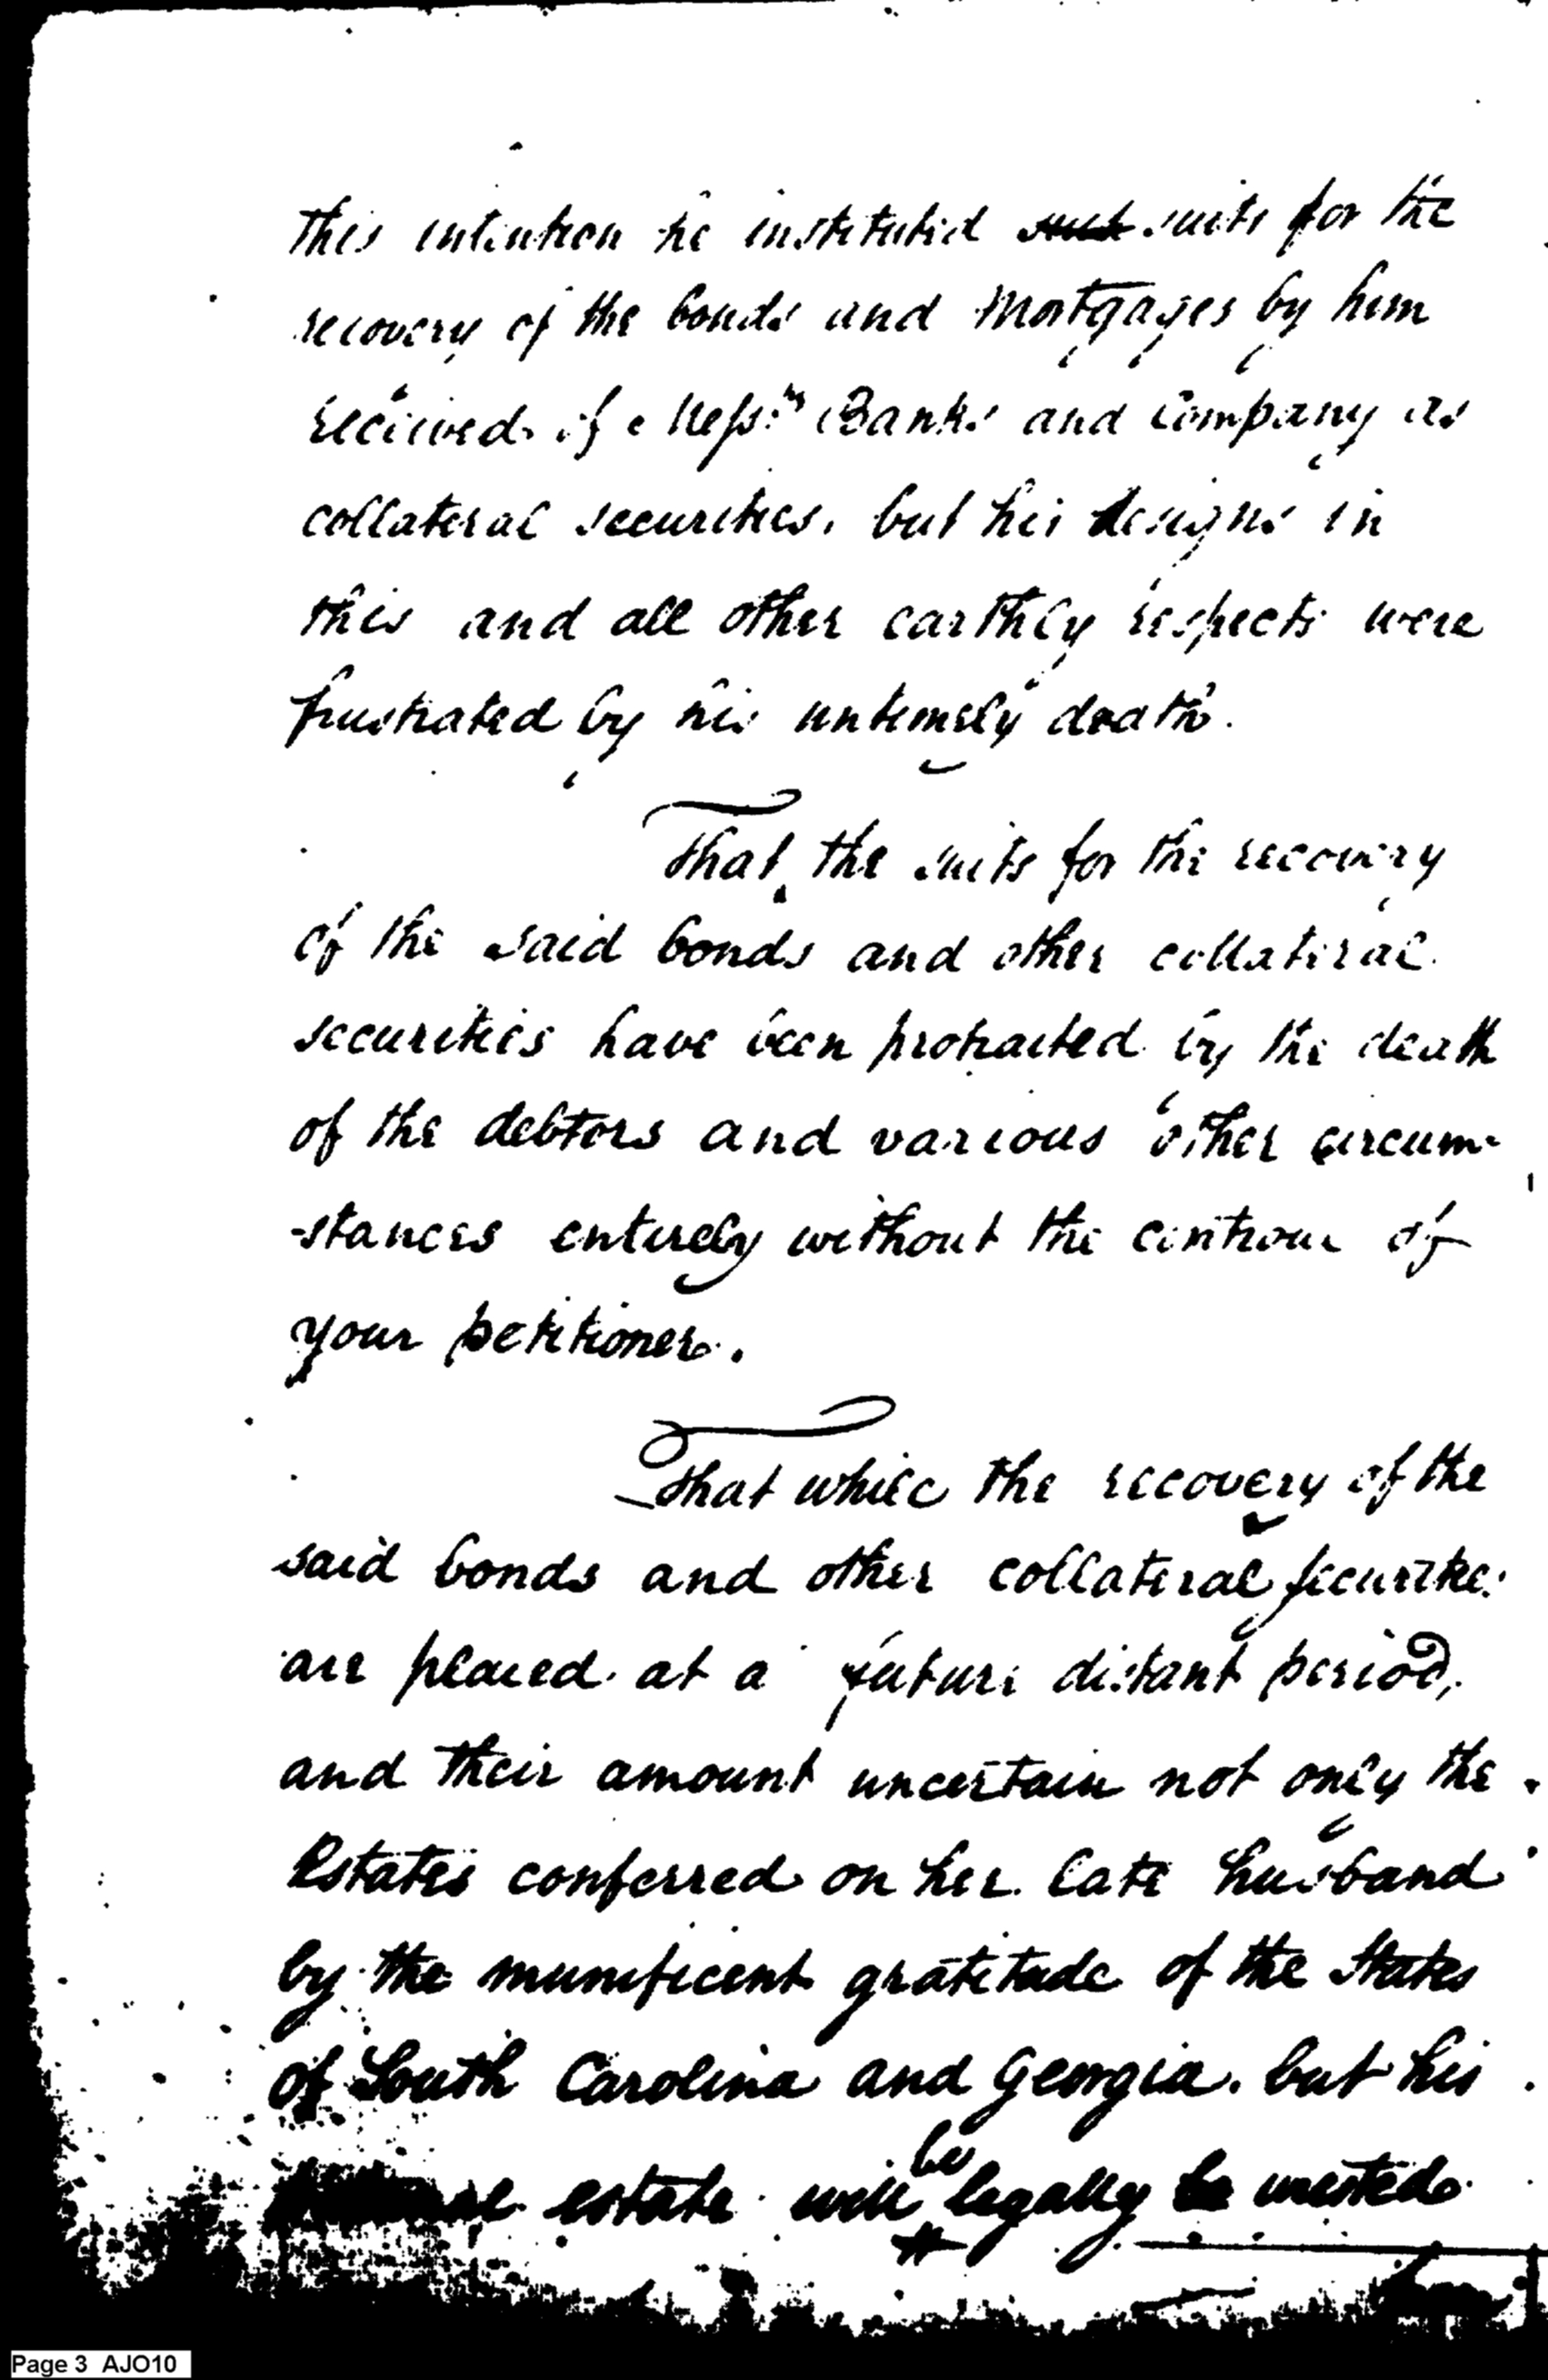 this intention he instituted suit suits for the
recovery of the bonds and Mortgages by him
received of Messrs Banks and Company as
collateral securities, but his designs in
this and all other earthly respects were
frustrated by his untimely death.
That the suits for the recovery
of the said bonds and other collateral
securities have been protracted by the death
of the debtors and various other circum-
-stances entirely without the controul of
your petitioner.
That while the recovery of the
said bonds and other collateral securities
are placed at a future distant period,
and their amount uncertain not only the
Estates conferred on her late husband
by the munificent gratitude of the States
of South Carolina and Georgia. but his
estate will be legally be wrested
Page 3 AJO10